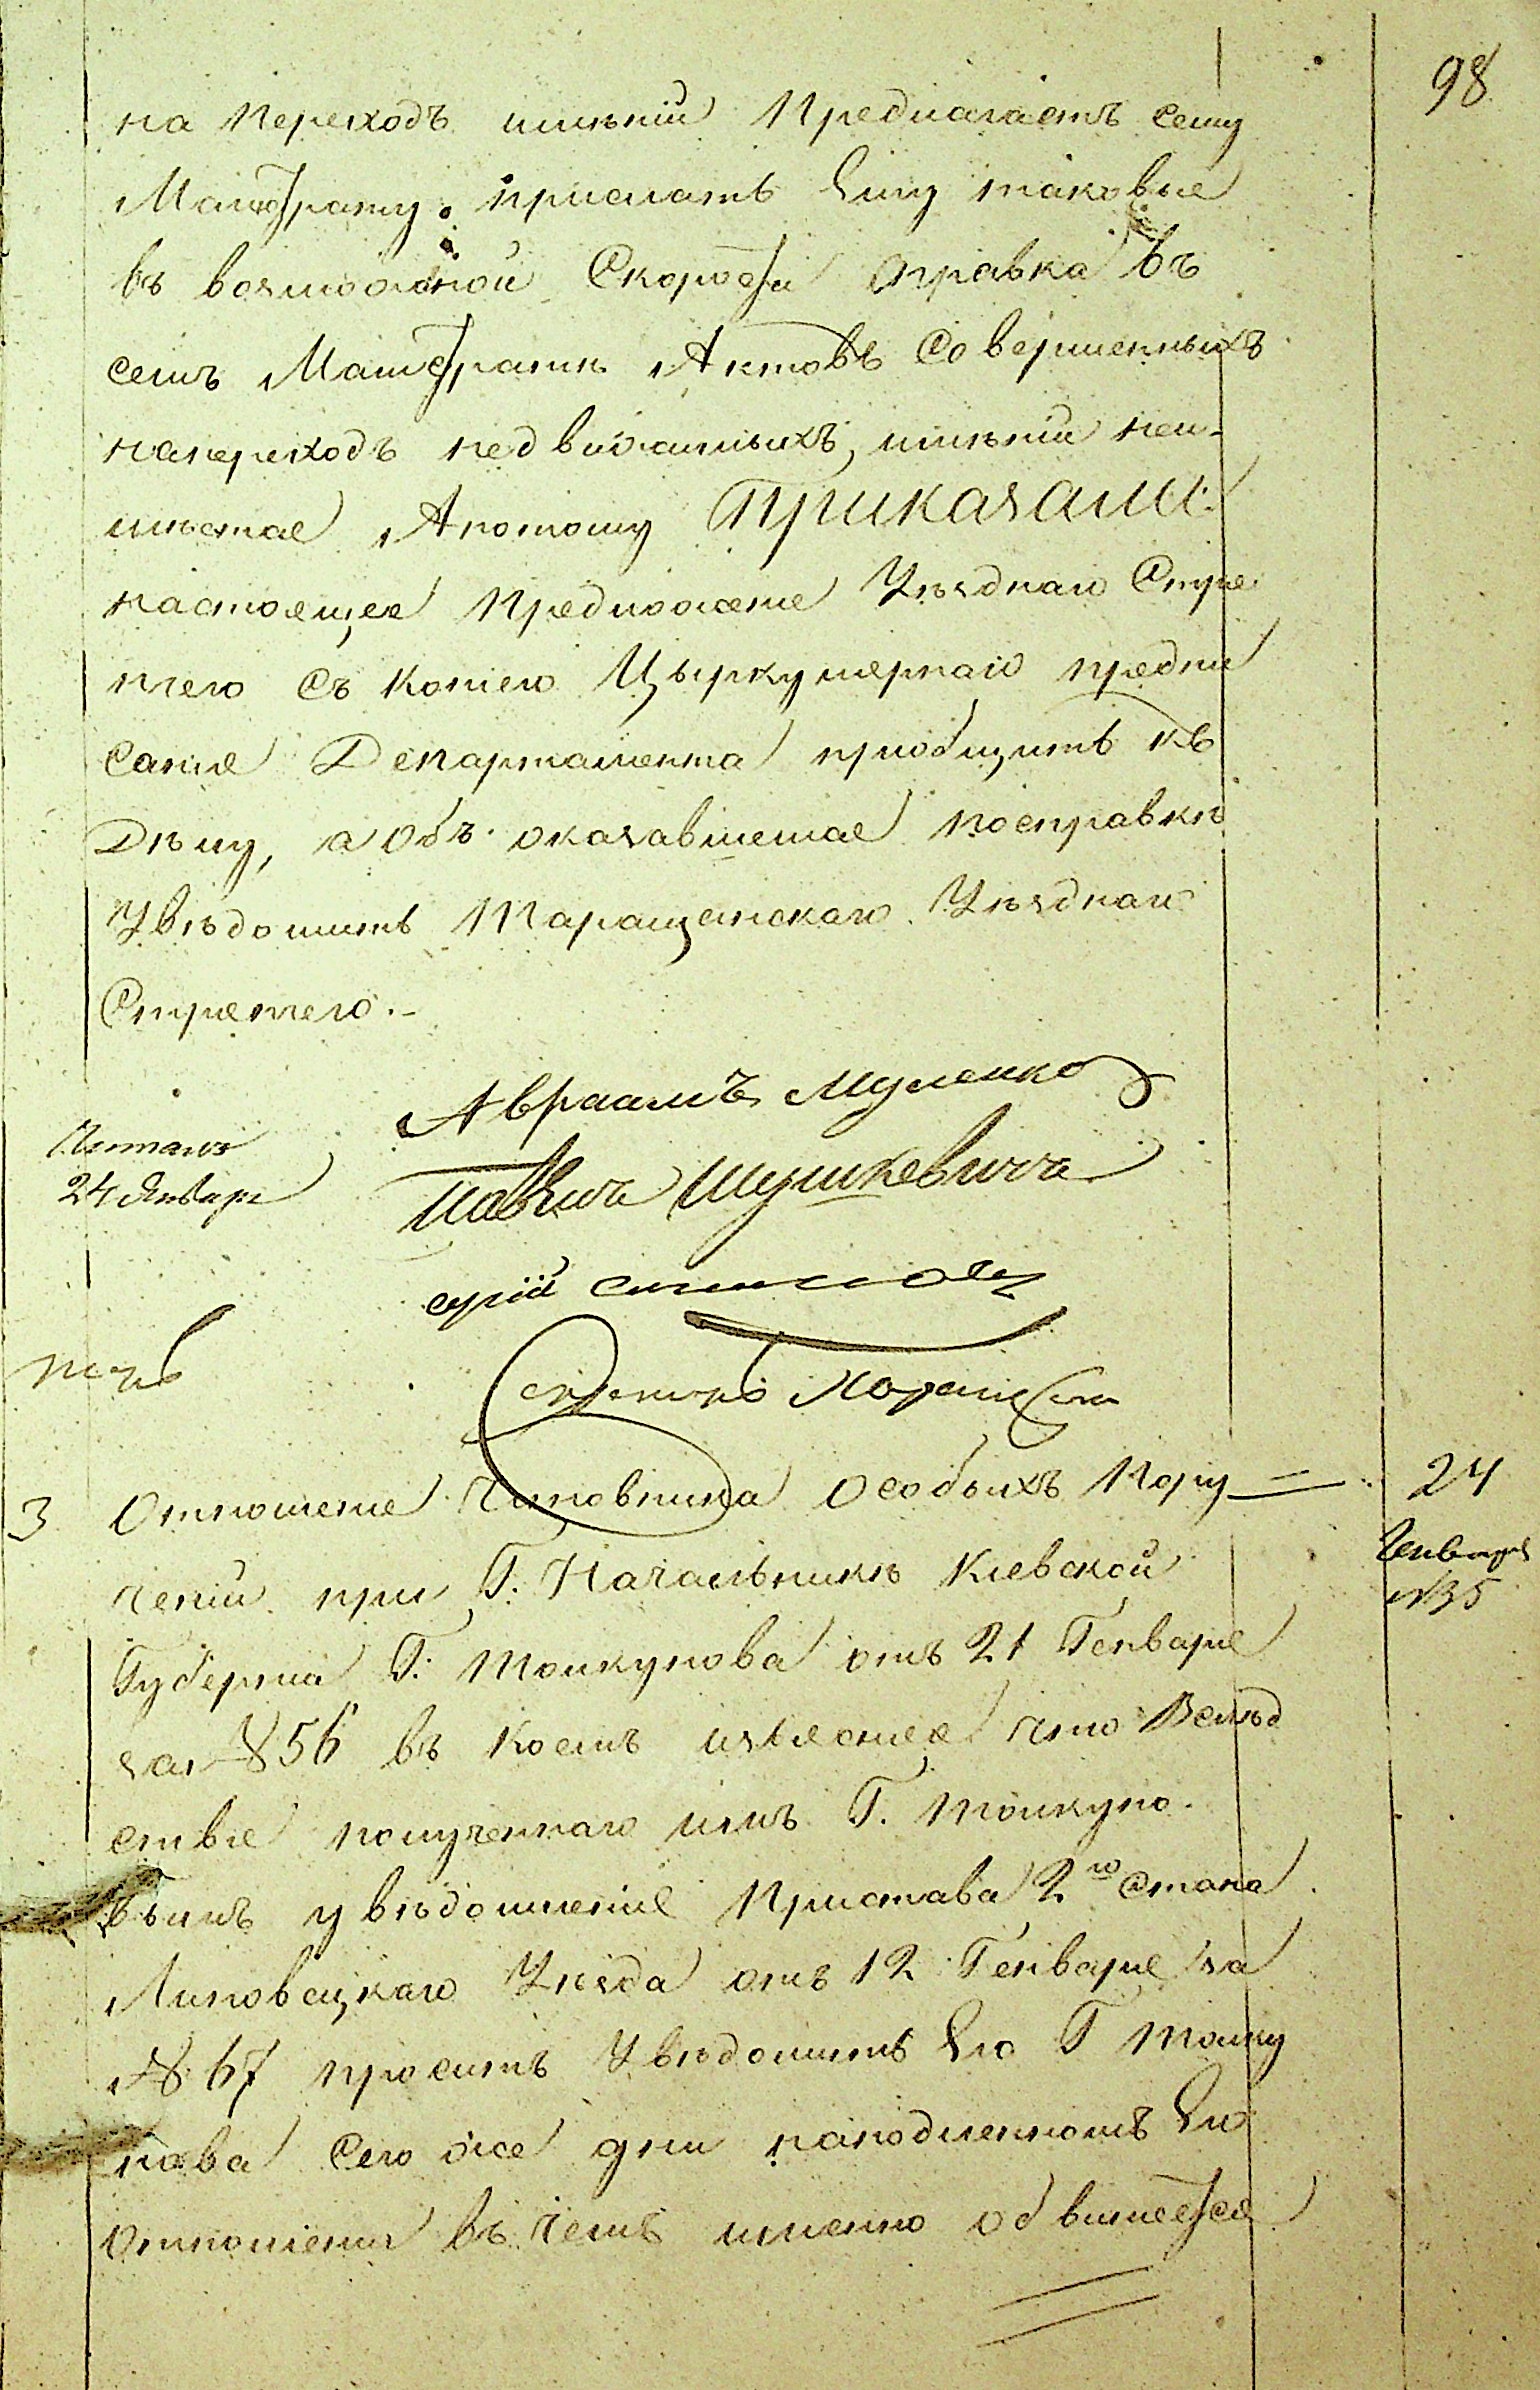 98
на переходъ имѣній предлагаетъ сему
Магистрату прислать Ему таковые
въ возможной скорости справка въ
семъ Магистратѣ Актовъ совершенныхъ
напереходъ недвижимыхъ имѣній неи-
имѣетсе Апотому Приказали:
настоящее предложение Уѣзднаго Стря
пчего съ копіею Цыркулярнаго предпи
сания Департамента приобщить къ
Дѣлу, а объ оказавшемся посправкѣ
Увѣдомить Таращанскаго Уѣзднаго
Стряпчего.-
Авраамъ
Читалъ
24 Январе
Павелъ Шушкевичъ
Секретарь
3 Отношение Чиновника особыхъ Пору
24
Генваря
№35
чений при Г. Начальникѣ Киевской
Губернии Г. Толкунова отъ 21 Генваре
за №56 въ коемъ изъясняе что Вслѣд
ствие полученнаго имъ Г. Толкуно-
вымъ увѣдомление Пристава 2го Стана
Липовецкаго Уѣзда отъ 12 Генваре за
№ 67 проситъ Увѣдомить Его Г Толку
нова сего же дни наподленномъ Его
отношении въ чемъ именно обвиняетсе